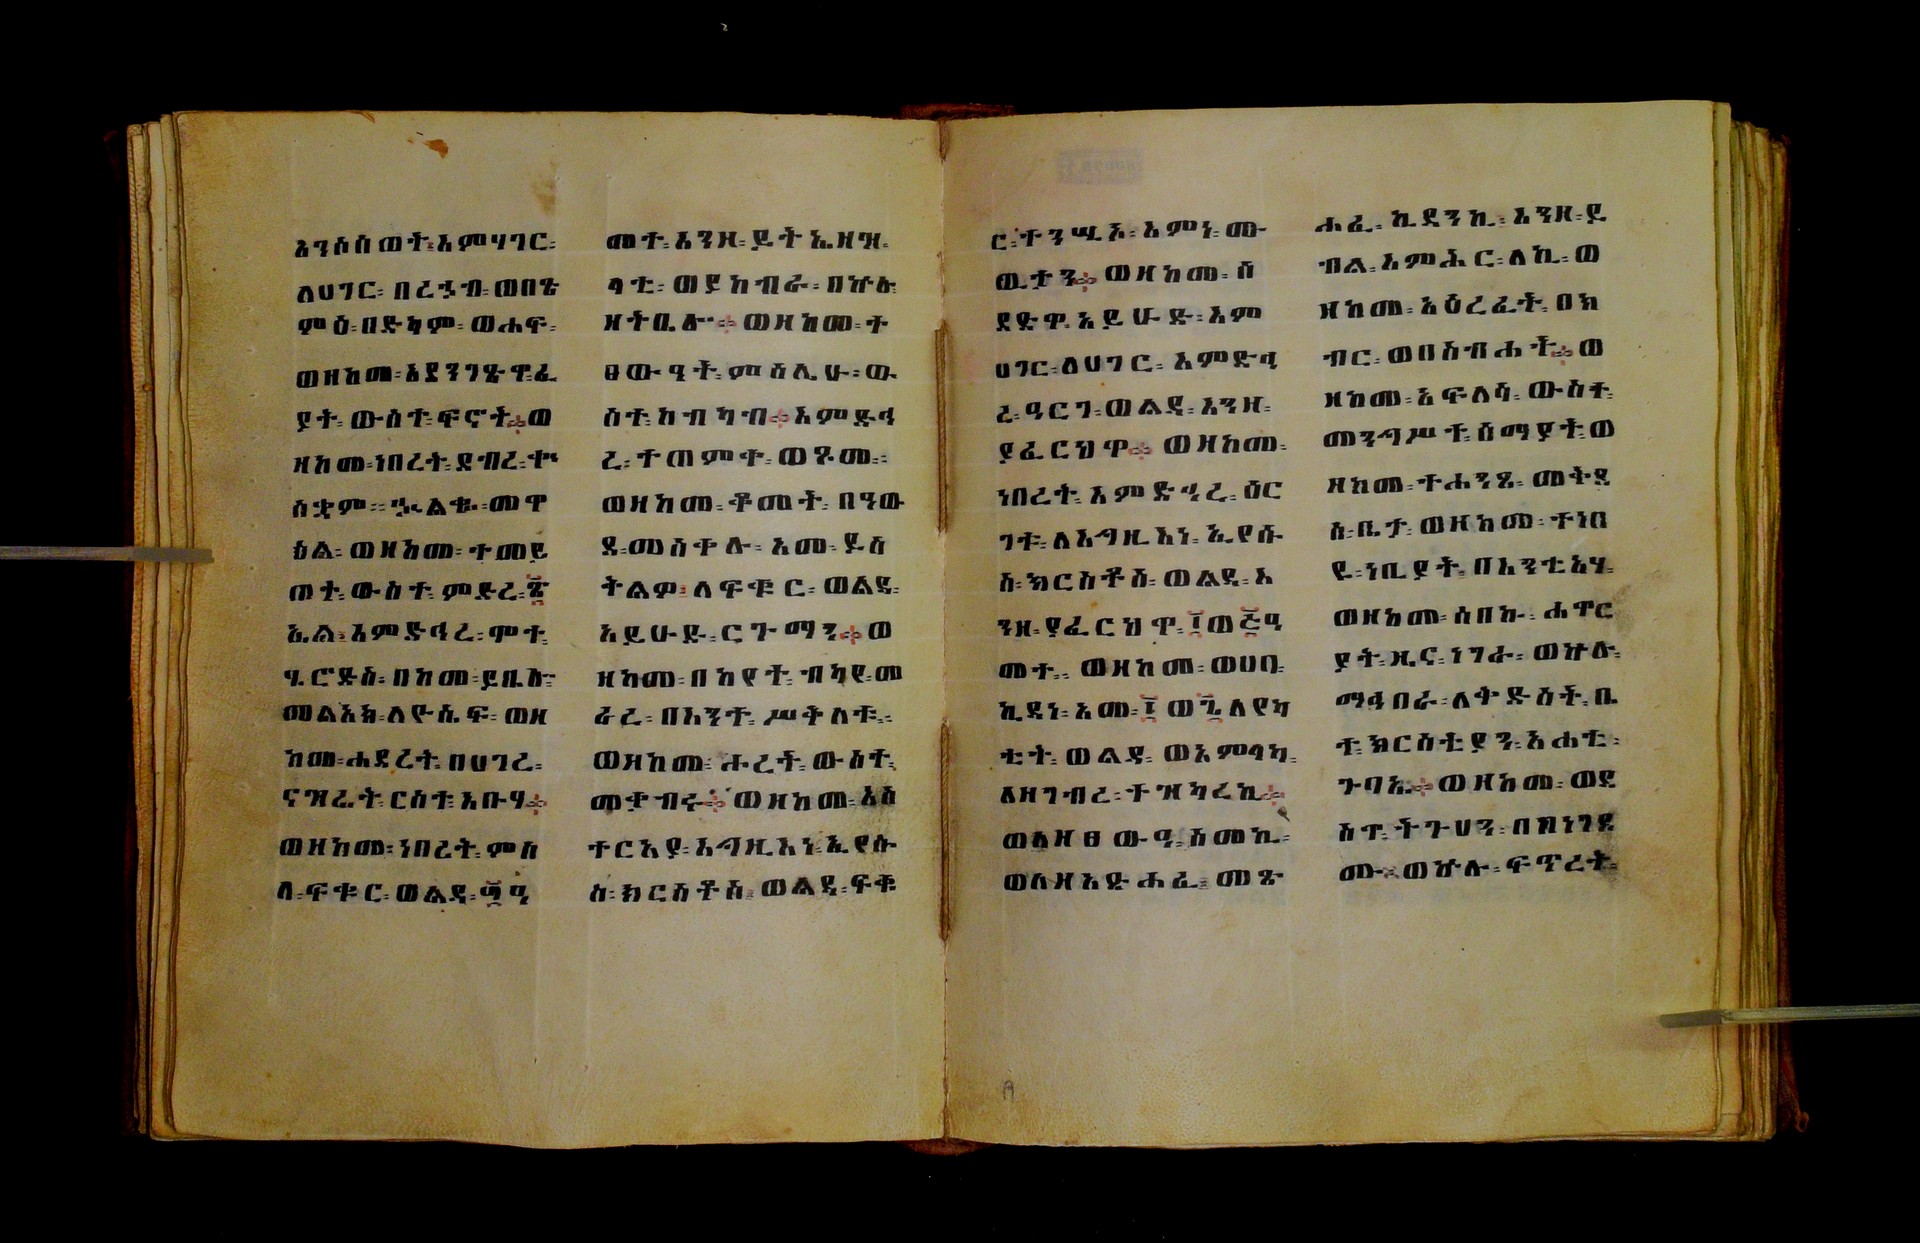 አንሶሰወት፡እምሃገር፡
ለሀገር፡በረኃብ፡ወበጽ
ምዕ፡በድካም፡ወሐፍ፡
ወዘከመ፡አደንገፁዋ፡ፈ
ያት፡ውስተ፡ፍኖት፨ወ
ዘከመ፡ነበረት፡ደብረ፡ቍ
ስቋም፡፡ኍልቁ፡መዋ
ዕል፡ወዘከመ፡ተመይ
ጠተ፡ውስተ፡ምድረ፡፳
ኤል፡እምድኅረ፡ሞተ፡
ሄሮድስ፡በከመ፡ይቤሎ፡
መልአክ፡ለዮሴፍ፡ወዘ
ከመ፡ሐደረት፡በሀገረ፡
ናዝሬት፡ርስተ፡አቡሃ፨
ወዘከመ፡ነበረት፡ምስ
ለ፡ፍቁር፡ወልዳ፡
መተ፡እንዘ፡ይትኤዘዝ፡
ላቲ፡ወያከብራ፡በኵሉ፡
ዘትቤሎ፨ወዘከመ፡ተ
ፀውዓት፡ምስሌሁ፡ው
ስተ፡ከብካብ፨እምድኅ
ረ፡ተጠምቀ፡ወጾመ፡፡
ወዘከመ፡ቆመት፡በዓው
ደ፡መስቀሉ፡አመ፡ይሰ
ትልዎ፡ለፍቁር፡ወልዳ፡
አይሁድ፡ርጉማን፨ወ
ዘከመ፡በከየት፡ብካየ፡መ
ራረ፡በእንተ፡ሥቅለቱ፡፡
ወዘከመ፡ሖረት፡ውስተ፡
መቃብሩ፨ወዘከመ፡አስ
ተርአያ፡እግዚእነ፡ኢየሱ
ስ፡ክርስቶስ፡ወልዳ፡ፍቁ
ር፡ተንሢኦ፡እምነ፡ሙ
ዉታን፨ወዘከመ፡ሰ
ደድዋ፡አይሁድ፡እም
ሀገር፡ለሀገር፡እምድኅ
ረ፡ዓርገ፡ወልዳ፡እንዘ፡
ያፈርህዋ፨ወዘከመ፡
ነበረት፡እምድኅረ፡ዕር
ገቱ፡ለእግዚእነ፡ኢየሱ
ስ፡ክርስቶስ፡ወልዳ፡እ
ንዘ፡ያፈርህዋ፡፲ወ፭ዓ
መተ፡፡ወዘከመ፡ወሀበ፡
ኪዳነ፡አመ፡፲ወ፮ለየካ
ቲት፡ወልዳ፡ወአምላካ፡
ለዘገብረ፡ተዝካረኪ፨
ወለዘፀውዓ፡ስመኪ፡
ወለዘአጽሐፈ፡መጽ
ሐፈ፡ኪዳንኪ፡እንዘ፡ይ
ብል፡እምሕር፡ለኪ፡ወ
ዘከመ፡አዕረፈት፡በክ
ብር፡ወበስብሐት፨ወ
ዘከመ፡አፍለሳ፡ውስተ፡
መንግሥተ፡ሰማያት፡ወ
ዘከመ፡ተሐንጸ፡መቅደ
ስ፡ቤታ፡ወዘከመ፡ተነበ
ዩ፡ነቢያት፡በእንቲአሃ፡
ወዘከመ፡ሰበኩ፡ሐዋር
ያት፡ዜና፡ነገራ፡ወኵሉ፡
ማኅበራ፡ለቅድስት፡ቤ
ተ፡ክርስቲያን፡አሐቲ፡
ጉባኤ፨ወዘከመ፡ወደ
ስዋ፡ትጉሀን፡በክነገደ
ሙ፡ወኵሉ፡ፍጥረት፡